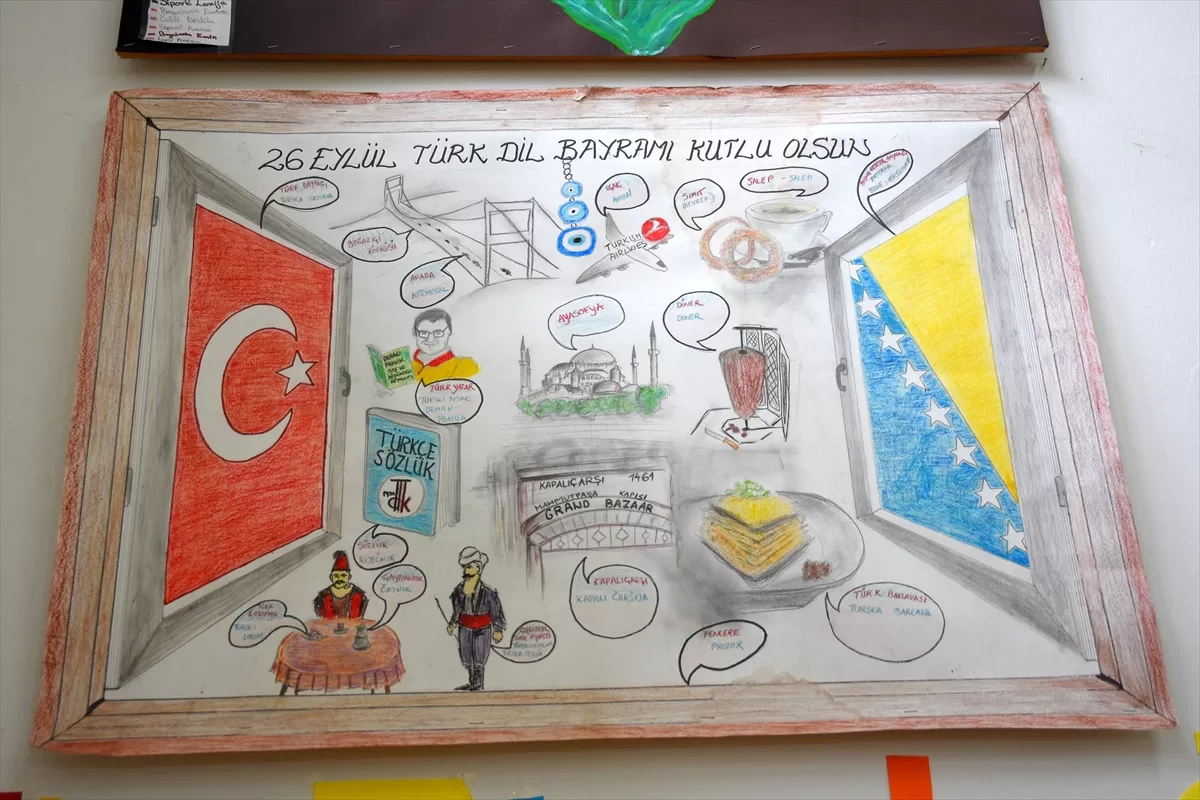 Sipovic Lamija
26 EYLÜL TÜRK DİL BAYRAMI KUTLU OLSUN
TÜRK BAYRAĞI
TURSKA ZASTAVA
UÇAK
AVION
SIMIT
DEVREK
SALEP - SALEP
BOĞAZİÇİ
KÖPRÜSÜ
TURKISH
AIRLINES
ARABA
AUTOMOBIL
AYASOFYA
DÖNER
DONER
ORHAN
PAMUK
TÜRK YAZAR
TURSKI PISAC
ORHAN
PAMUK
TÜRKÇE
SÖZLÜK
KAPALIÇARŞI 1461
MAHMUTPAŞA KAPISI
GRAND BAZAAR
SÖZLÜK
RIJEČNIK
ÇAYDANLIK
ČAJNIK
KAPALIÇARŞI
KAPALI ČARŠIJA
TÜRK BAKLAVASI
TURSKA BAKLAVA
TÜRK
LOKUMU
TURSKI
LOKUM
PENCERE
PROZOR